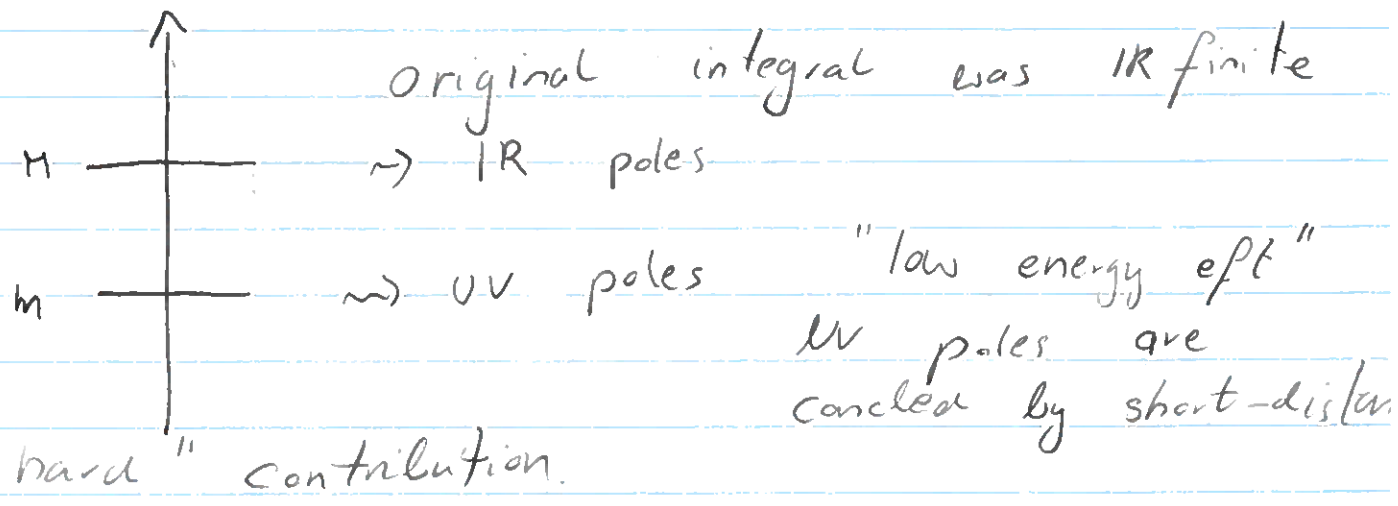 original integral was IR finite
M ~> IR poles
m ~> UV poles "low energy eft"
UV poles are
concled by short-distan
hard" contribution.